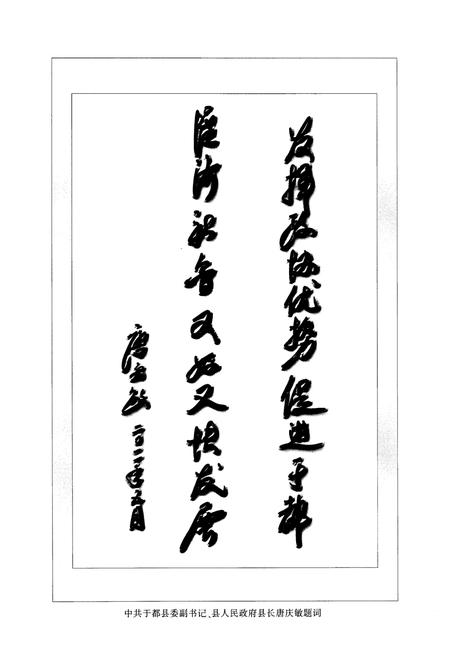 发挥政协优势促进于都
经济社会又好又快发展
唐庆敏二〇一一年五月
中共于都县委副书记、县人民政府县长唐庆敏题词